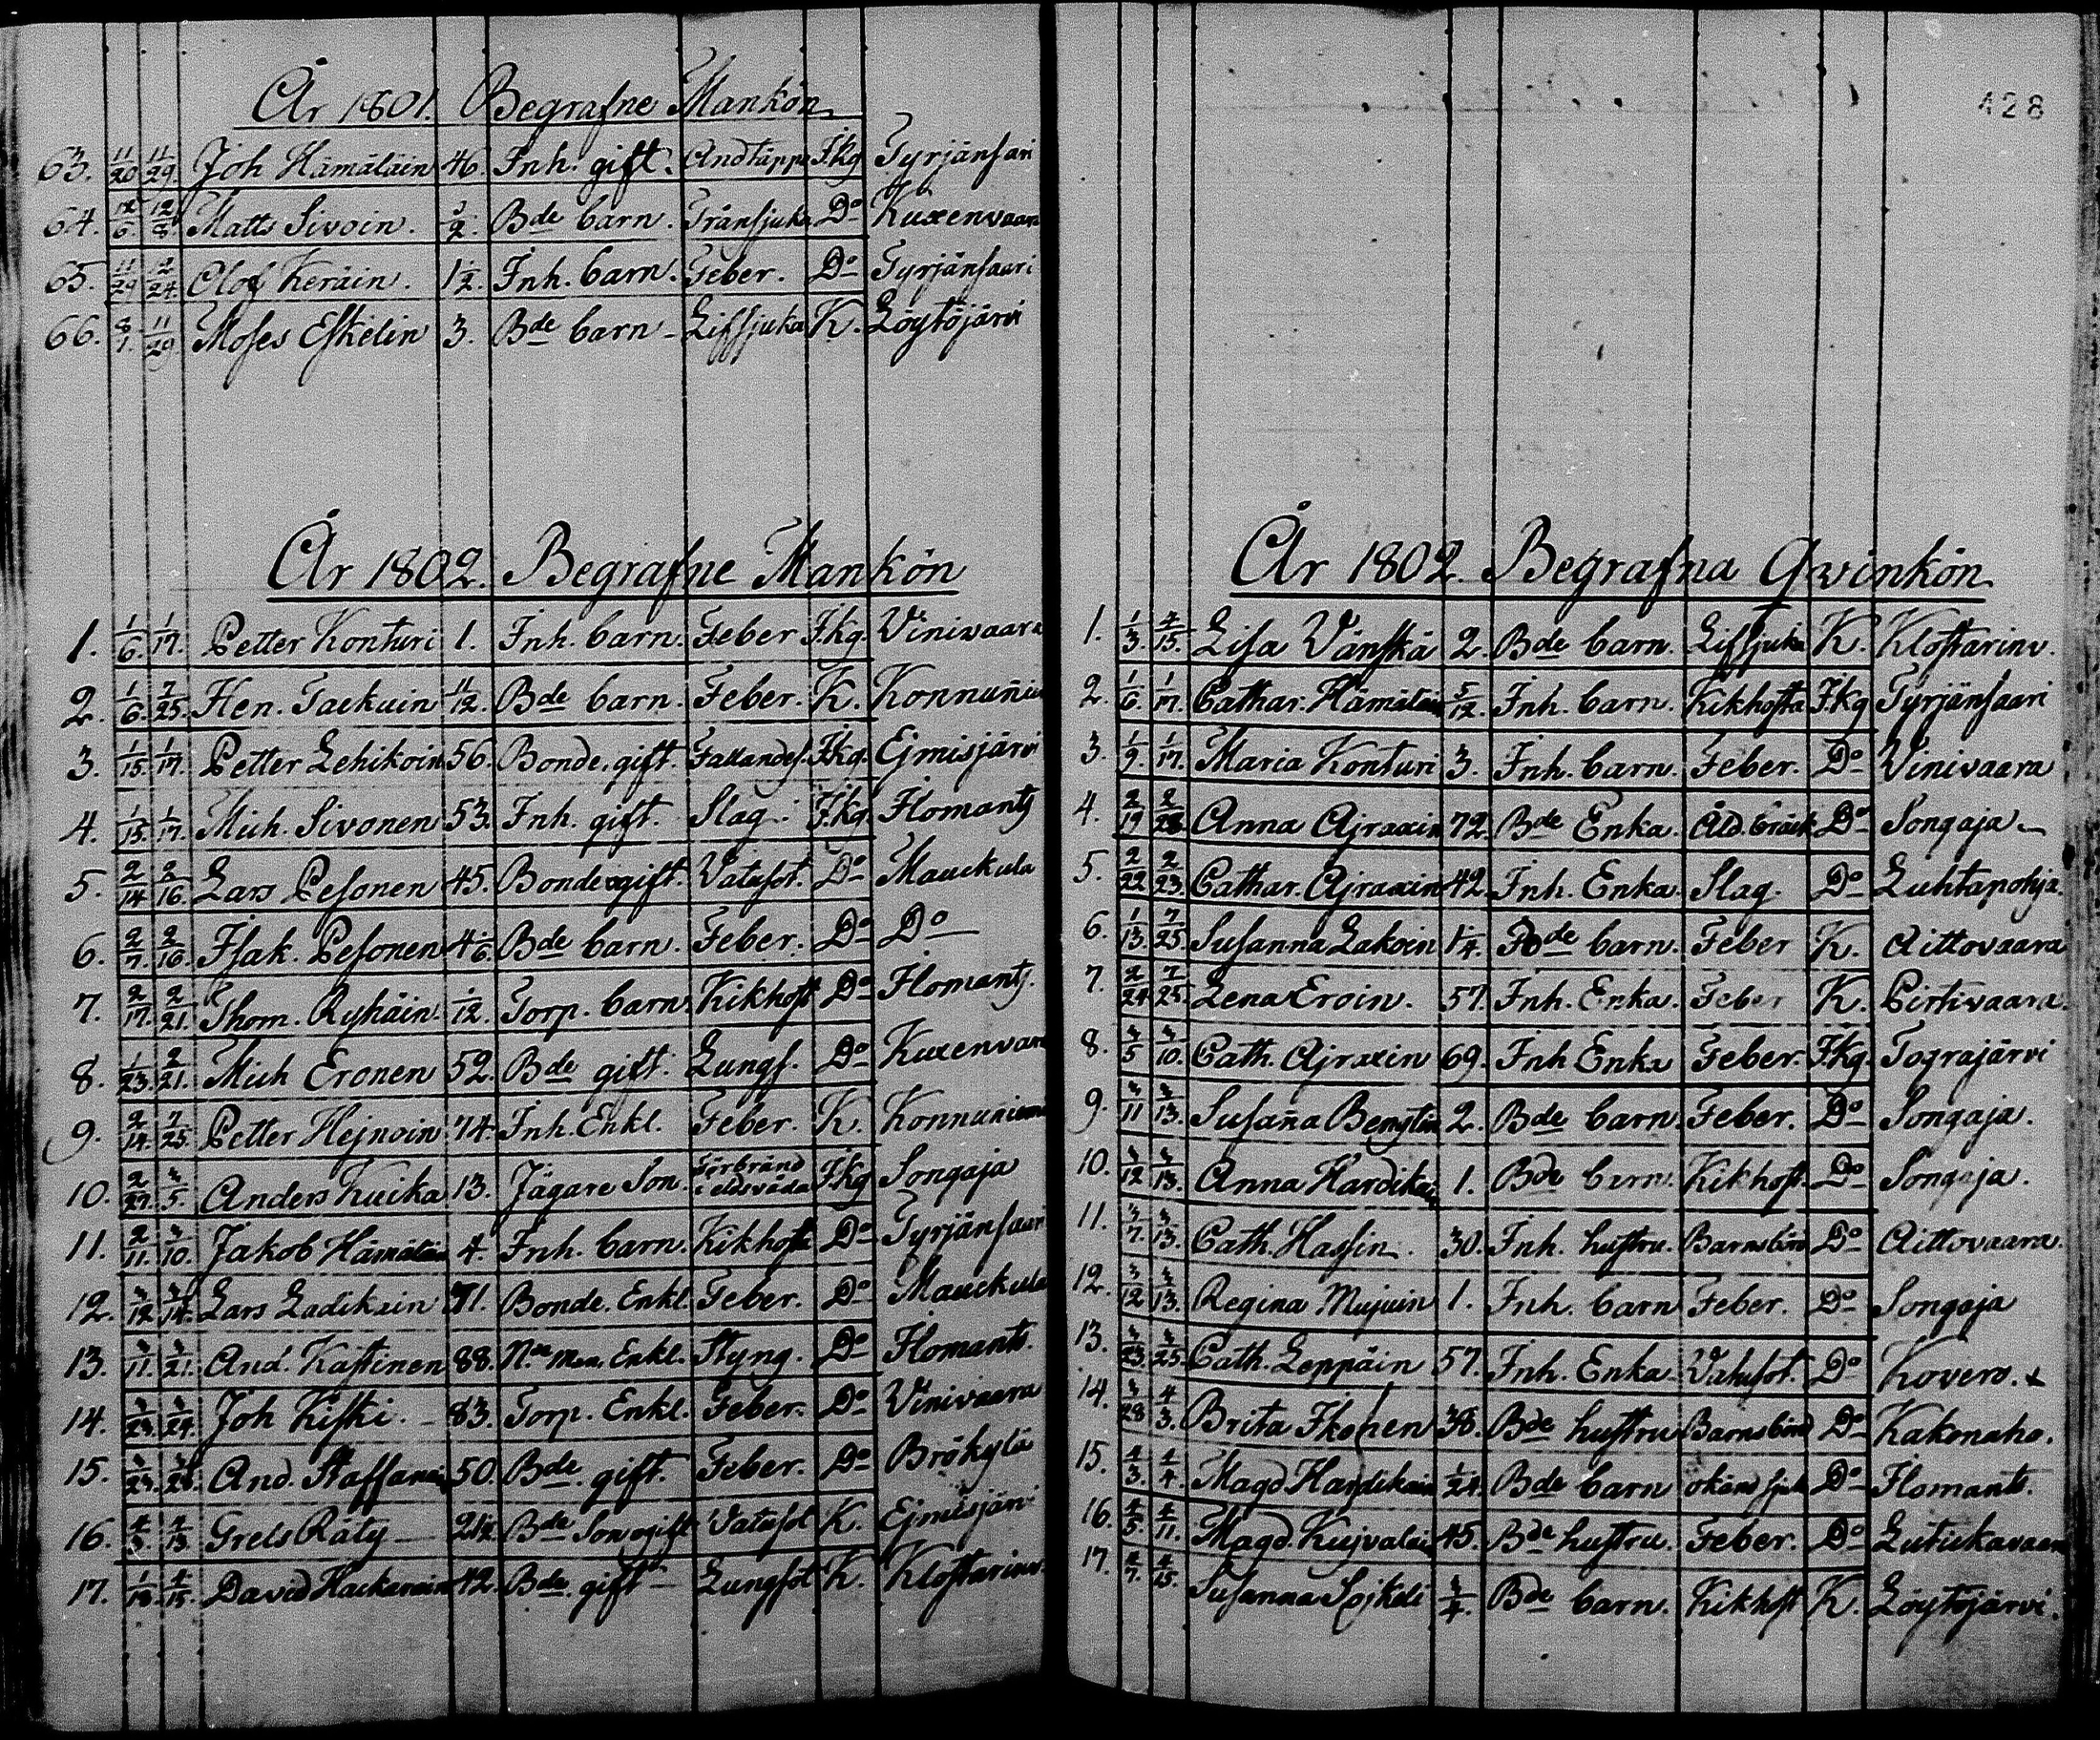 År 1801. Begrafne Mankön
63. 11/20 11/29. Joh Hämäläin 46. Inh. gift. Andtäppa J.kg Tyrjänsari
64. 12/6. 12/8 Matts Sivoin. 1/2. Bde barn. Tränsjuka Do Kuxenvaara
65. 11/29 12/24. Olof Keräin. 1 1/2. Inh. barn. Feber. Do Tyrjänsaari
66. 8/1. 11/29 Moses Eskelin 3. Bde barn - Lifsjuka K. Löytöjärvi
År 1802. Begrafne Mankön
1. 1/6. 1/17. Petter Konturi 1. Inh. barn. Feber J.kg. Vinivaara
2. 1/6. 7/25. Hen. Taekuin 11/12. Bde barn. Feber. K. Konnunie
3. 1/15. 1/17. Petter Lehikoin 56. Bonde. gift. Fallandes. J.kg. Ejmisjärvi
4. 1/15. 1/17. Mich. Sivonen 53. Inh. gift. Slag. J.kg. Ilomants
5. 2/14 2/16. Lars Pesonen 45. Bonde gift. Vatusot. Do Mauckula
6. 2/7. 2/16. Isak. Pesonen 4 1/6. Bde barn. Feber. Do Do
7. 2/17. 2/21. Thom. Ryhäin 1/12. Torp. barn Kikhost Do Ilomants.
8. 1/23. 2/21. Mich Eronen 52. Bde gift. Lungs. Do Kuxenvara
9. 2/14. 7/25. Petter Hejnoin 74. Inh. Enkl. Feber. K. Konnuniemi
10. 2/27. 3/5. Anders Kuika 13. Jägare Son. Förbränd i eldsvåda J.kg Songaja
11. 2/11. 3/10. Jakob Hämäläin 4. Inh. barn. Kikhosta Do Tyrjänsaari
12. 3/12 3/14. Lars Ladikain 71. Bonde. Enkl. Feber. Do Mauckula
13. 3/11. 3/21. And. Kastinen 88. Enkl. Styng. Do Ilomants.
14. 3/23. 3/24. Joh Kiski. - 83. Torp. Enkl. Feber. Do Vinivaara
15. 3/23. 3/28. And. Staffanain 50. Bde gift. Feber. Do Brökylä
16. 4/3. 4/13. Grels Räty - 21 1/2 Bde Son ogift Vatusot K. Ejmisjärvi
17. 1/18. 4/15. David Hackarain 42. Bde gift - Lungsot K. Klostarinv.
428
År 1802. Begrafna Qwinkön
1. 1/3. 4/15. Lisa Vänskä 2. Bde barn. Lifsjuka K. Klostarinv.
2. 1/6. 1/17. Cathar. Hämäläin 5/12. Inh. barn. Kikhosta J.kg Tyrjänsaari
3. 1/9. 1/17. Maria Konturi 3. Inh. barn. Feber. Do Vinivaara
4. 2/19 2/28 Anna Ajraxin 72. Bde Enka. Åld. bräck Do Songaja
5. 2/22 2/23. Cathar. Ajraxin 42. Inh. Enka. Slag. Do Luhtapohja.
6. 1/13. 7/25. Susanna Lakoin 1/4. Bde barn. Feber K. Aittovaara
7. 2/24 7/25. Lena Eroin. 57. Inh. Enka. Feber K. Pirtivaara.
8. 3/5 3/10. Cath. Ajraxin 69. Inh Enka Feber. J.kg. Tograjärvi
9. 3/11 3/13. Susaña Bengtin 2. Bde barn. Feber. Do Songaja.
10. 3/12 3/13. Anna Hardikain 1. Bde barn. Kikhost. Do Songaja.
11. 3/7. 3/13. Cath. Hassin. 30. Inh. hustru. Barnsbörd Do Aittovaara.
12. 3/12 3/13. Regina Mujuin 1. Inh. barn Feber. Do Songaja
13. 3/23. 3/25. Cath. Leppäin 57. Inh. Enka. Vatusot. Do Kovero. +
14. 3/28 4/3. Brita Ikonen 38. Bde hustru Barnsbörd Do Kakonaho.
15. 4/3. 4/4. Magd Hardikain 1/24. Bde barn okänd sjuk Do Ilomants.
16. 4/5. 4/11. Magd. Kujvalain 45. Bde hustru. Feber. Do Lutiukavaara
17. 4/7. 4/15. Susanna Sojkeli 3/4. Bde barn. Kikhost K. Löytöjärvi.